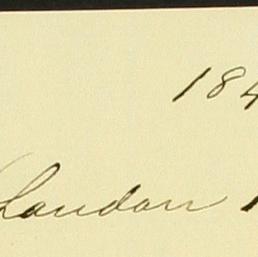 184
Landon